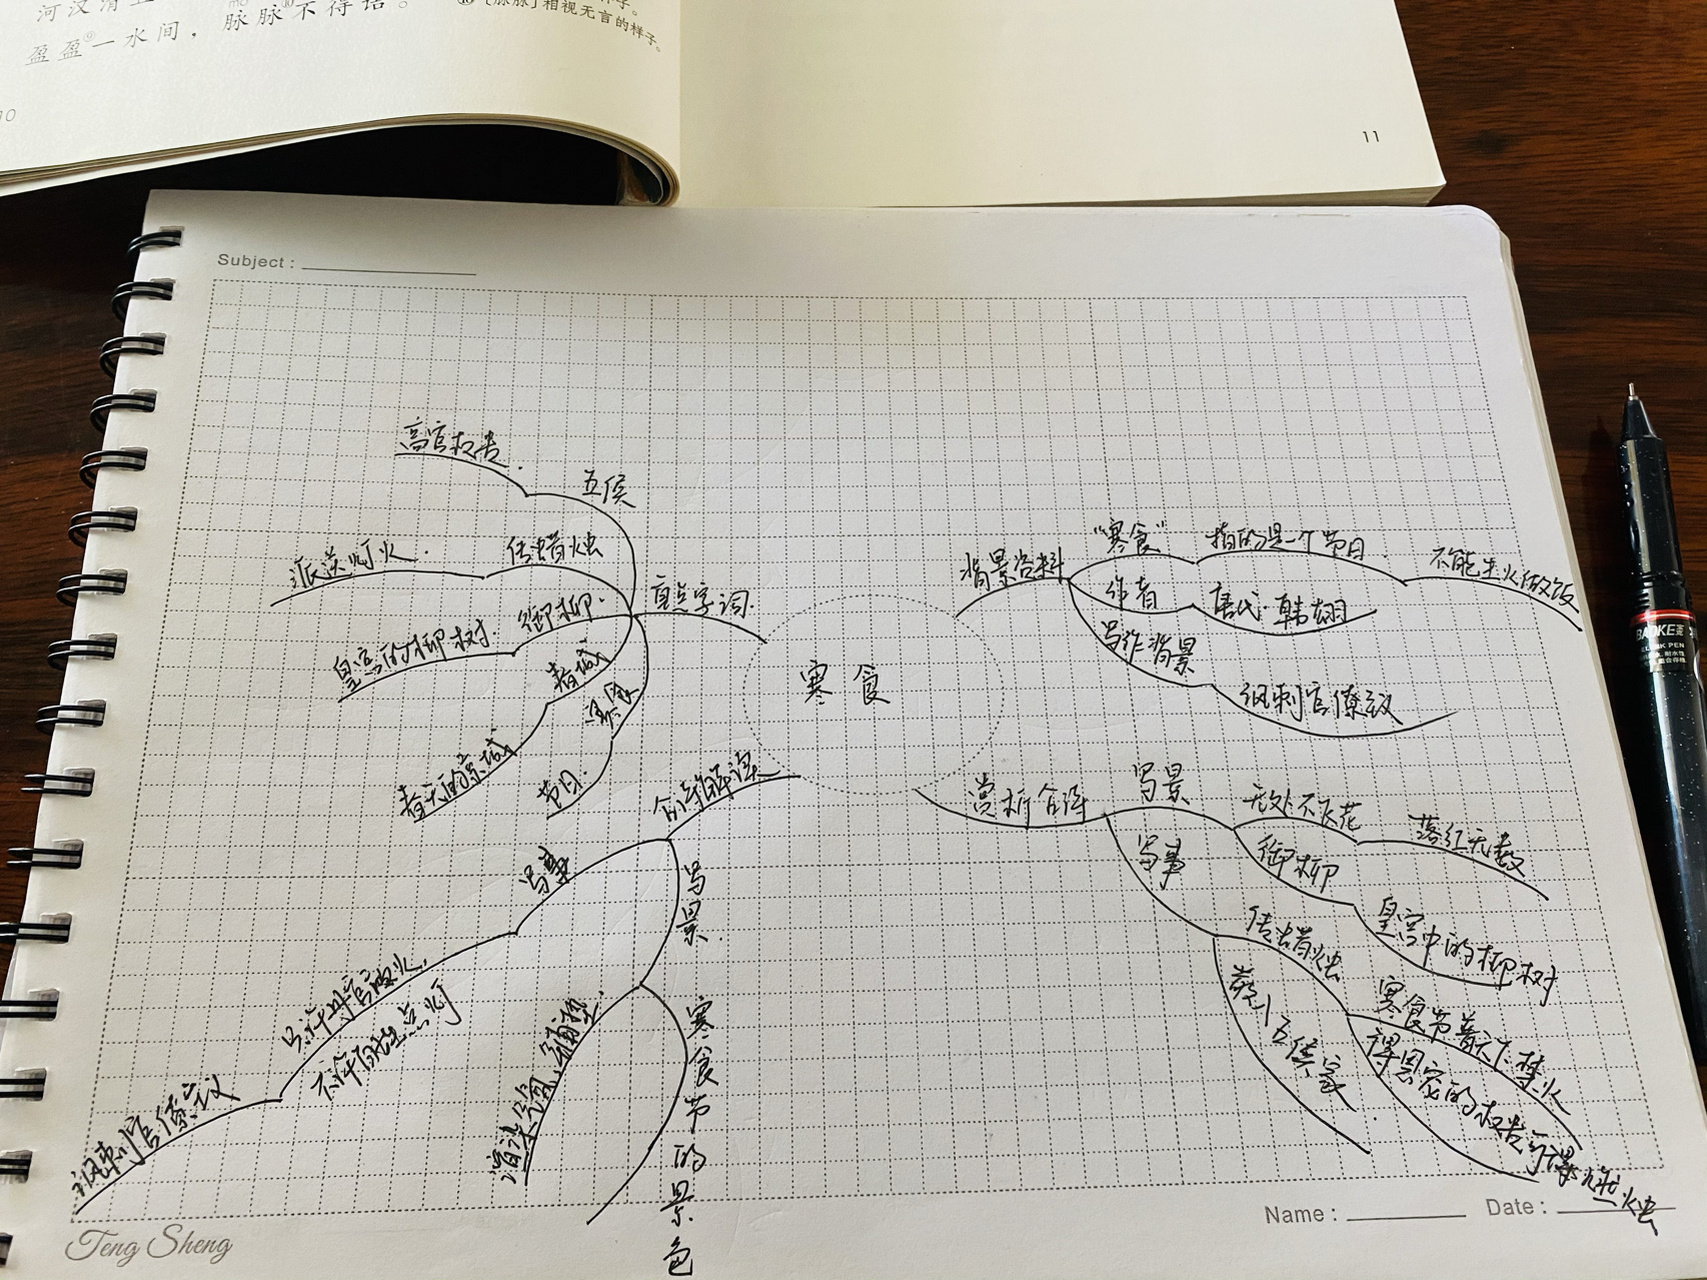 盈盈⑨一水间，脉脉⑩不得语。
⑩〔脉脉〕相视无言的样子。
11
Subject :
寒食
背景资料
“寒食”
指的是一个节日
不能生火做饭
作者
唐代·韩翃
写作背景
讽刺官僚主义
赏析全诗
写景
无处不飞花
落红无数
御柳
皇宫中的柳树
写事
传蜡烛
寒食节普天下禁火
得恩宠的权贵可
散入五侯家
重点字词
五侯
高官权贵
传蜡烛
派送灯火
御柳
皇宫的柳树
春城
春天的京城
寒食
节日
全诗解读
写景
寒食节的景色
渲染气氛，铺垫
写事
只许州官放火，
不许百姓点灯
讽刺官僚主义
Teng Sheng
Name :
Date :
BAOKE